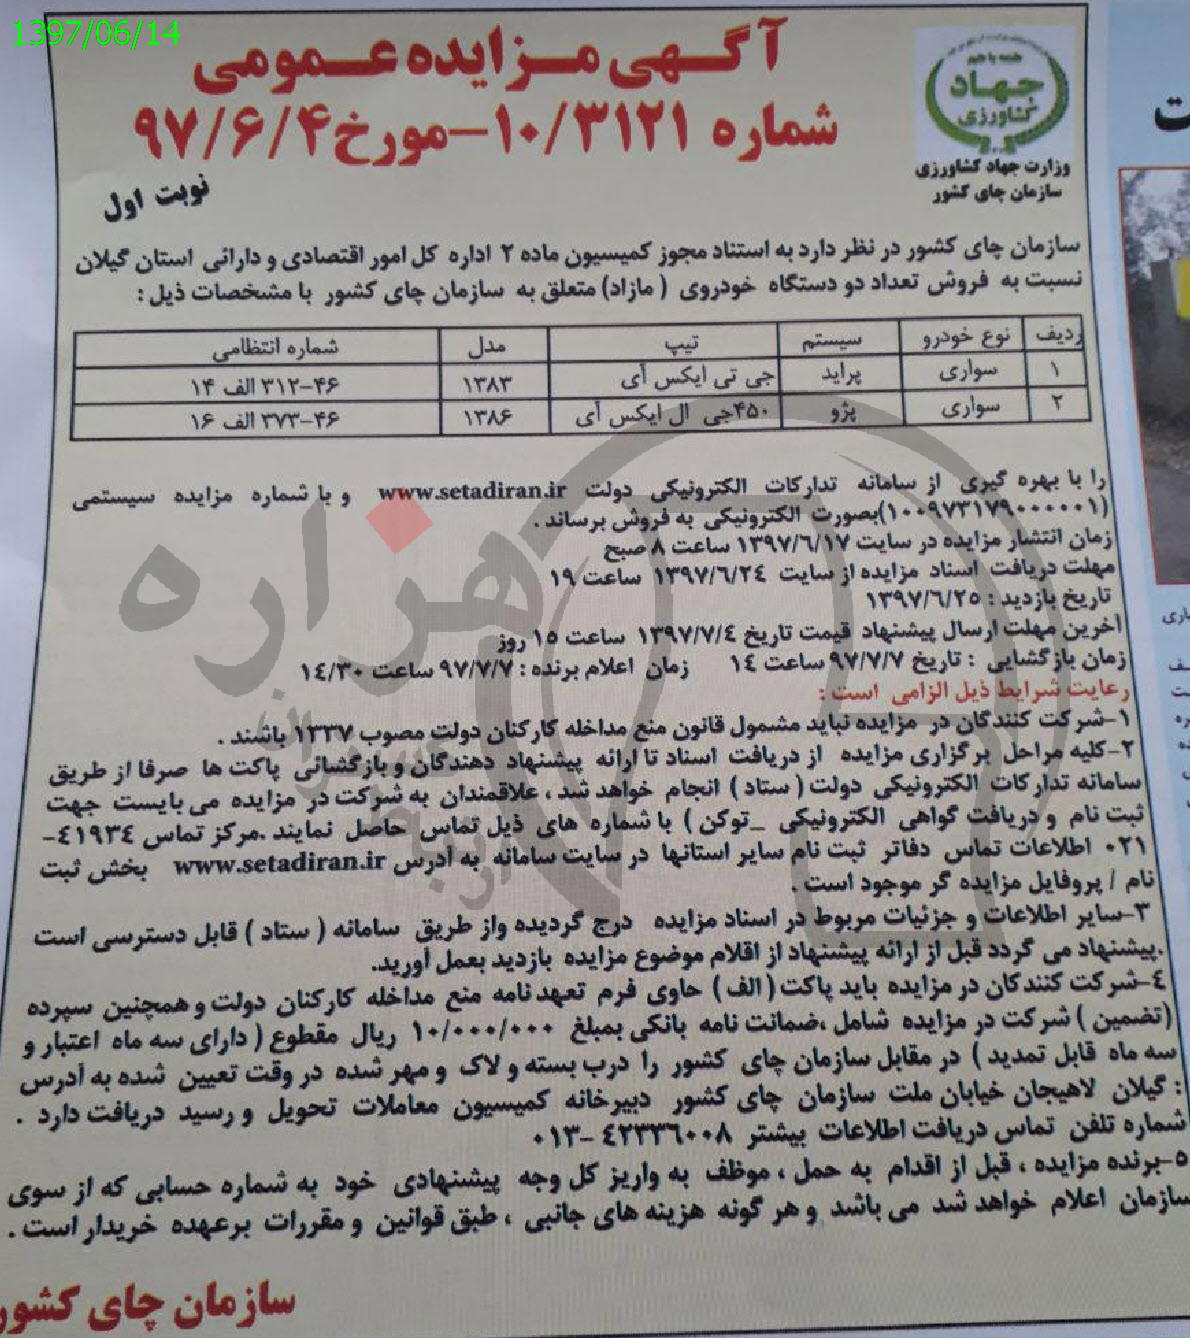 1397/06/14
آگهی مزایده عمومی
شماره ۱۰/۳۱۲۱-مورخ۹۷/۶/۴
همه با هم
جهاد
کشاورزی
وزارت جهاد کشاورزی
سازمان چای کشور
نوبت اول
سازمان چای کشور در نظر دارد به استناد مجوز کمیسیون ماده ۲ اداره کل امور اقتصادی و دارائی استان گیلان
نسبت به فروش تعداد دو دستگاه خودروی ( مازاد) متعلق به سازمان چای کشور با مشخصات ذیل :
ردیف نوع خودرو سیستم تیپ مدل شماره انتظامی
۱ سواری پراید جی تی ایکس آی ۱۳۸۳ ۴۶-۳۱۲ الف ۱۴
۲ سواری پژو ۴۵۰جی ال ایکس آی ۱۳۸۶ ۴۶-۳۷۳ الف ۱۶
را با بهره گیری از سامانه تدارکات الکترونیکی دولت www.setadiran.ir و با شماره مزایده سیستمی
(۱۰۰۹۷۳۱۷۹۰۰۰۰۰۱)بصورت الکترونیکی به فروش برساند .
زمان انتشار مزایده در سایت ۱۳۹۷/۶/۱۷ ساعت ۸ صبح
مهلت دریافت اسناد مزایده از سایت ۱۳۹۷/۶/۲۴ ساعت ۱۹
تاریخ بازدید : ۱۳۹۷/۶/۲۵
آخرین مهلت ارسال پیشنهاد قیمت تاریخ ۱۳۹۷/۷/۴ ساعت ۱۵ روز
زمان بازگشایی : تاریخ ۹۷/۷/۷ ساعت ۱۴ زمان اعلام برنده : ۹۷/۷/۷ ساعت ۱۴/۳۰
رعایت شرایط ذیل الزامی است :
۱-شرکت کنندگان در مزایده نباید مشمول قانون منع مداخله کارکنان دولت مصوب ۱۳۳۷ باشند .
۲-کلیه مراحل برگزاری مزایده از دریافت اسناد تا ارائه پیشنهاد دهندگان و بازگشائی پاکت ها صرفا از طریق
سامانه تدارکات الکترونیکی دولت ( ستاد ) انجام خواهد شد ، علاقمندان به شرکت در مزایده می بایست جهت
ثبت نام و دریافت گواهی الکترونیکی _توکن ) با شماره های ذیل تماس حاصل نمایند .مرکز تماس ۴۱۹۳۴-
۰۲۱ اطلاعات تماس دفاتر ثبت نام سایر استانها در سایت سامانه به آدرس www.setadiran.ir بخش ثبت
نام / پروفایل مزایده گر موجود است .
۳-سایر اطلاعات و جزئیات مربوط در اسناد مزایده درج گردیده واز طریق سامانه ( ستاد ) قابل دسترسی است
.پیشنهاد می گردد قبل از ارائه پیشنهاد از اقلام موضوع مزایده بازدید بعمل آورید.
۴-شرکت کنندگان در مزایده باید پاکت ( الف ) حاوی فرم تعهدنامه منع مداخله کارکنان دولت و همچنین سپرده
(تضمین ) شرکت در مزایده شامل ،ضمانت نامه بانکی بمبلغ ۱۰/۰۰۰/۰۰۰ ریال مقطوع ( دارای سه ماه اعتبار و
سه ماه قابل تمدید ) در مقابل سازمان چای کشور را درب بسته و لاک و مهر شده در وقت تعیین شده به آدرس
: گیلان لاهیجان خیابان ملت سازمان چای کشور دبیرخانه کمیسیون معاملات تحویل و رسید دریافت دارد .
شماره تلفن تماس دریافت اطلاعات بیشتر ۴۲۳۳۶۰۰۸ -۰۱۳
۵-برنده مزایده ، قبل از اقدام به حمل ، موظف به واریز کل وجه پیشنهادی خود به شماره حسابی که از سوی
سازمان اعلام خواهد شد می باشد و هر گونه هزینه های جانبی ، طبق قوانین و مقررات برعهده خریدار است .
سازمان چای کشور
هزاره